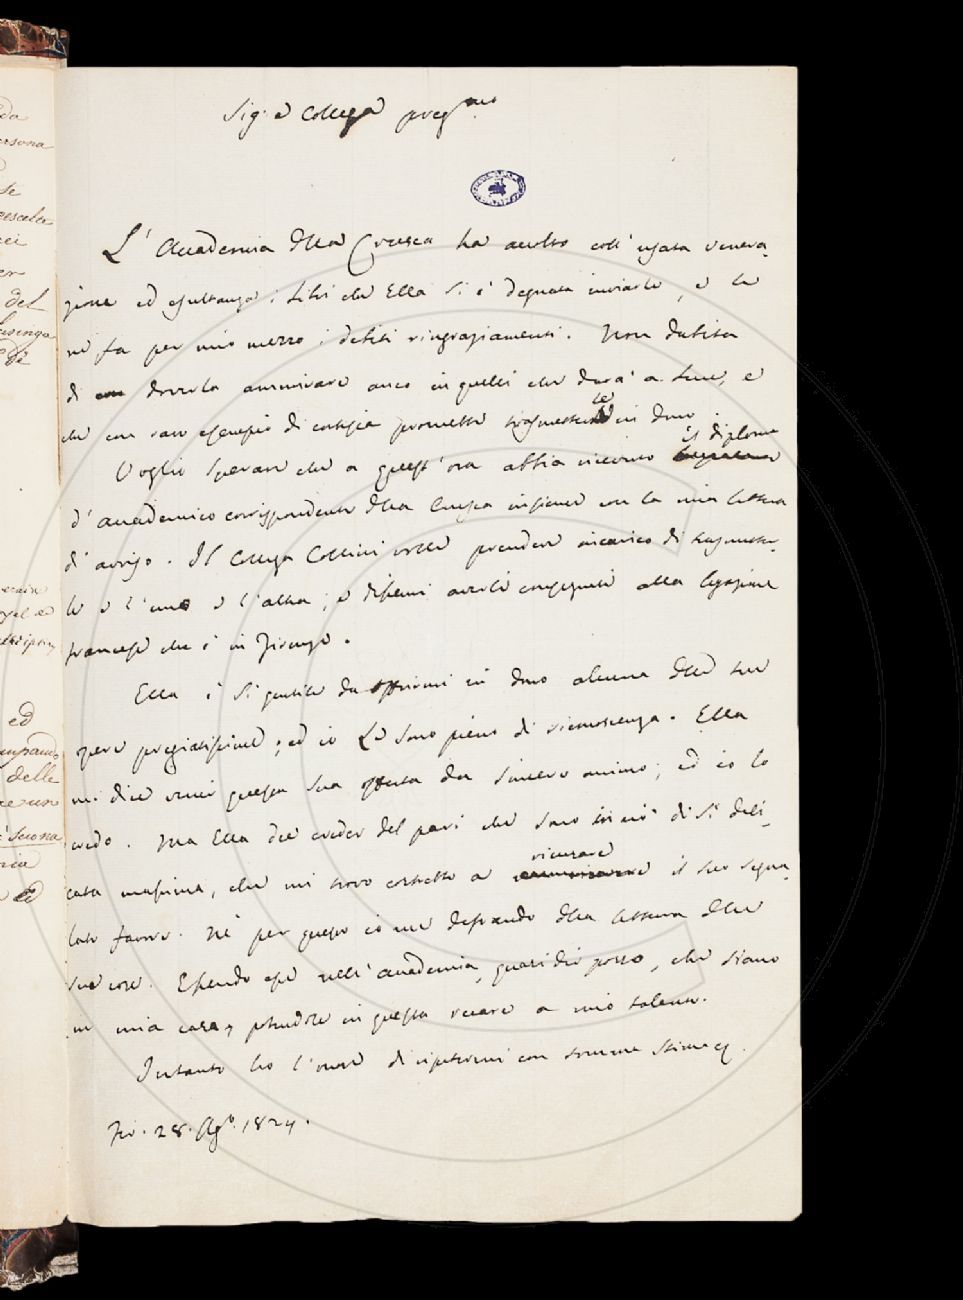 Sig. e Collega preg.mo
L'Accademia della Crusca ha accolto coll'usata venera-
zione ed esultanza i Libri che Ella si è degnata inviarle, e le
ne fa per mio mezzo i debiti ringraziamenti. Non dubita
di doverla ammirare anco in quelli che darà a luce, e
che con raro esempio di cortesia promette trasmetterle in dono.
Voglio sperare che a quest'ora abbia ricevuto il diploma
d'accademico corrispondente della Crusca insieme con la mia lettera
d'avviso. Il Collega Collini volle prendere incarico di trasmetter-
le e l'uno e l'altra; e dissemi averli consegnati alla legazione
francese che è in Firenze.
Ella è sì gentile da offrirmi in dono alcune delle sue
opere pregiatissime; ed io Le sono pieno di riconoscenza. Ella
mi dice venir questa sua offerta da sincero animo; ed io lo
credo. Ma Ella dee creder del pari che sono in ciò di sì deli-
cata massima, che mi trovo costretto a ricusare il suo segna-
lato favore. Nè per questo io me defraudo della lettura delle
sue cose. Essendo esse nell'accademia, quasi dir posso, che siano
in mia casa, potendole in questa recare a mio talento.
Intanto ho l'onore di ripetermi con somma stima ec.
Fir. 28. Ag.o 1824.